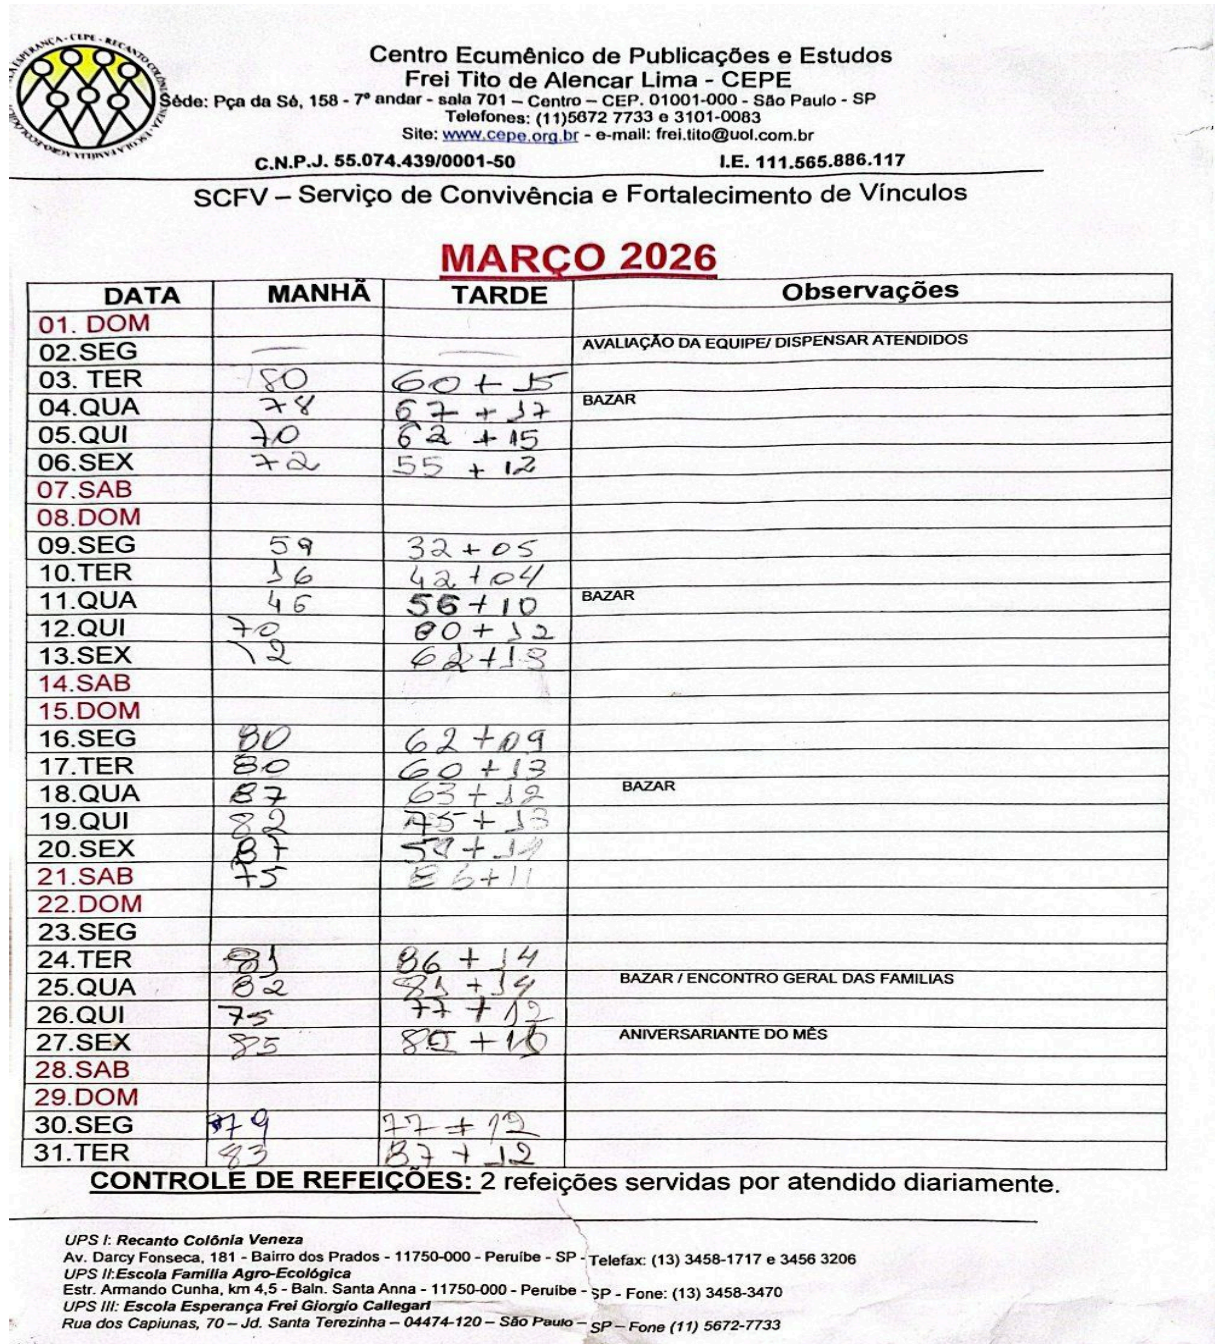 Centro Ecumênico de Publicações e Estudos
Frei Tito de Alencar Lima - CEPE
Séde: Pça da Sé, 158 - 7º andar - sala 701 – Centro – CEP. 01001-000 - São Paulo - SP
Telefones: (11)5672 7733 e 3101-0083
Site: www.cepe.org.br - e-mail: frei.tito@uol.com.br
C.N.P.J. 55.074.439/0001-50 I.E. 111.565.886.117
SCFV – Serviço de Convivência e Fortalecimento de Vínculos
MARÇO 2026
DATA MANHÃ TARDE Observações
01. DOM
02.SEG — — AVALIAÇÃO DA EQUIPE/ DISPENSAR ATENDIDOS
03. TER 80 60 + 15
04.QUA 78 67 + 17 BAZAR
05.QUI 70 62 + 15
06.SEX 72 55 + 12
07.SAB
08.DOM
09.SEG 59 32 + 05
10.TER 36 42 + 04
11.QUA 46 56 + 10 BAZAR
12.QUI 70 60 + 12
13.SEX 72 62 + 13
14.SAB
15.DOM
16.SEG 80 62 + 09
17.TER 80 60 + 13
18.QUA 87 63 + 12 BAZAR
19.QUI 82 75 + 13
20.SEX 87
21.SAB 75 86 + 11
22.DOM
23.SEG
24.TER 81 86 + 14
25.QUA 82 81 + 14 BAZAR / ENCONTRO GERAL DAS FAMILIAS
26.QUI 75 77 + 12
27.SEX 85 ANIVERSARIANTE DO MÊS
28.SAB
29.DOM
30.SEG 79 77 + 12
31.TER 83 87 + 12
CONTROLE DE REFEIÇÕES: 2 refeições servidas por atendido diariamente.
UPS I: Recanto Colônia Veneza
Av. Darcy Fonseca, 181 - Bairro dos Prados - 11750-000 - Peruíbe - SP - Telefax: (13) 3458-1717 e 3456 3206
UPS II:Escola Família Agro-Ecológica
Estr. Armando Cunha, km 4,5 - Baln. Santa Anna - 11750-000 - Peruibe - SP - Fone: (13) 3458-3470
UPS III: Escola Esperança Frei Giorgio Callegari
Rua dos Capiunas, 70 – Jd. Santa Terezinha – 04474-120 – São Paulo – SP – Fone (11) 5672-7733